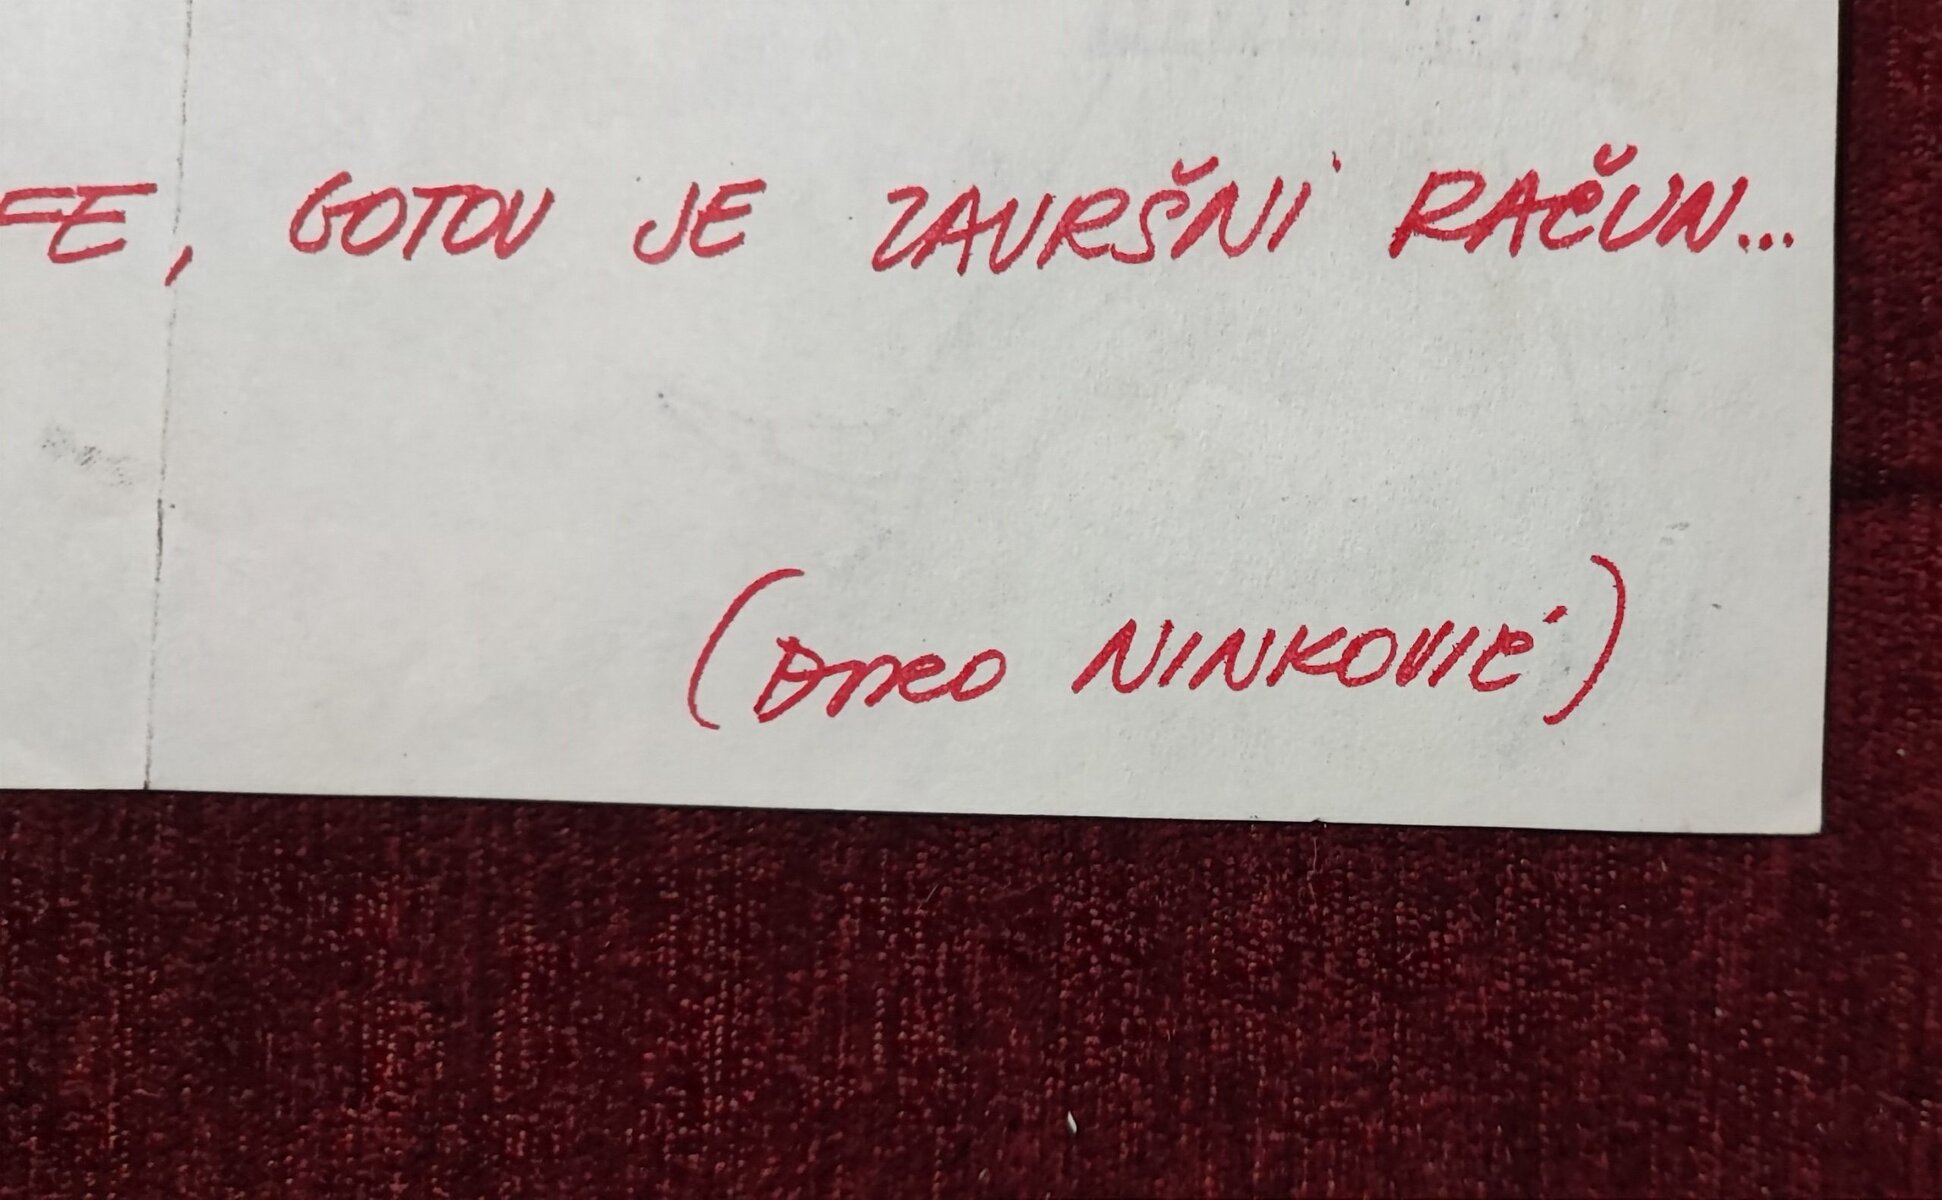 FE, GOTOV JE ZAVRŠNI RAČUN...
NINKOVIĆ)